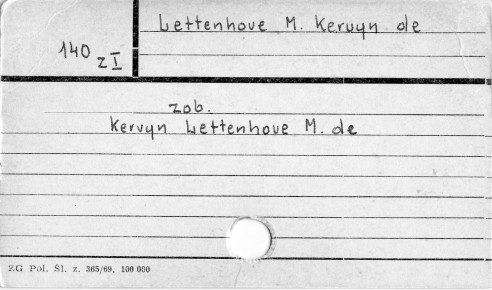 Lettenhove M. Kervyn de
140 z I
zob.
Kervyn Lettenhove M. de
ZG Pol. Śl. z. 365/69, 100 000